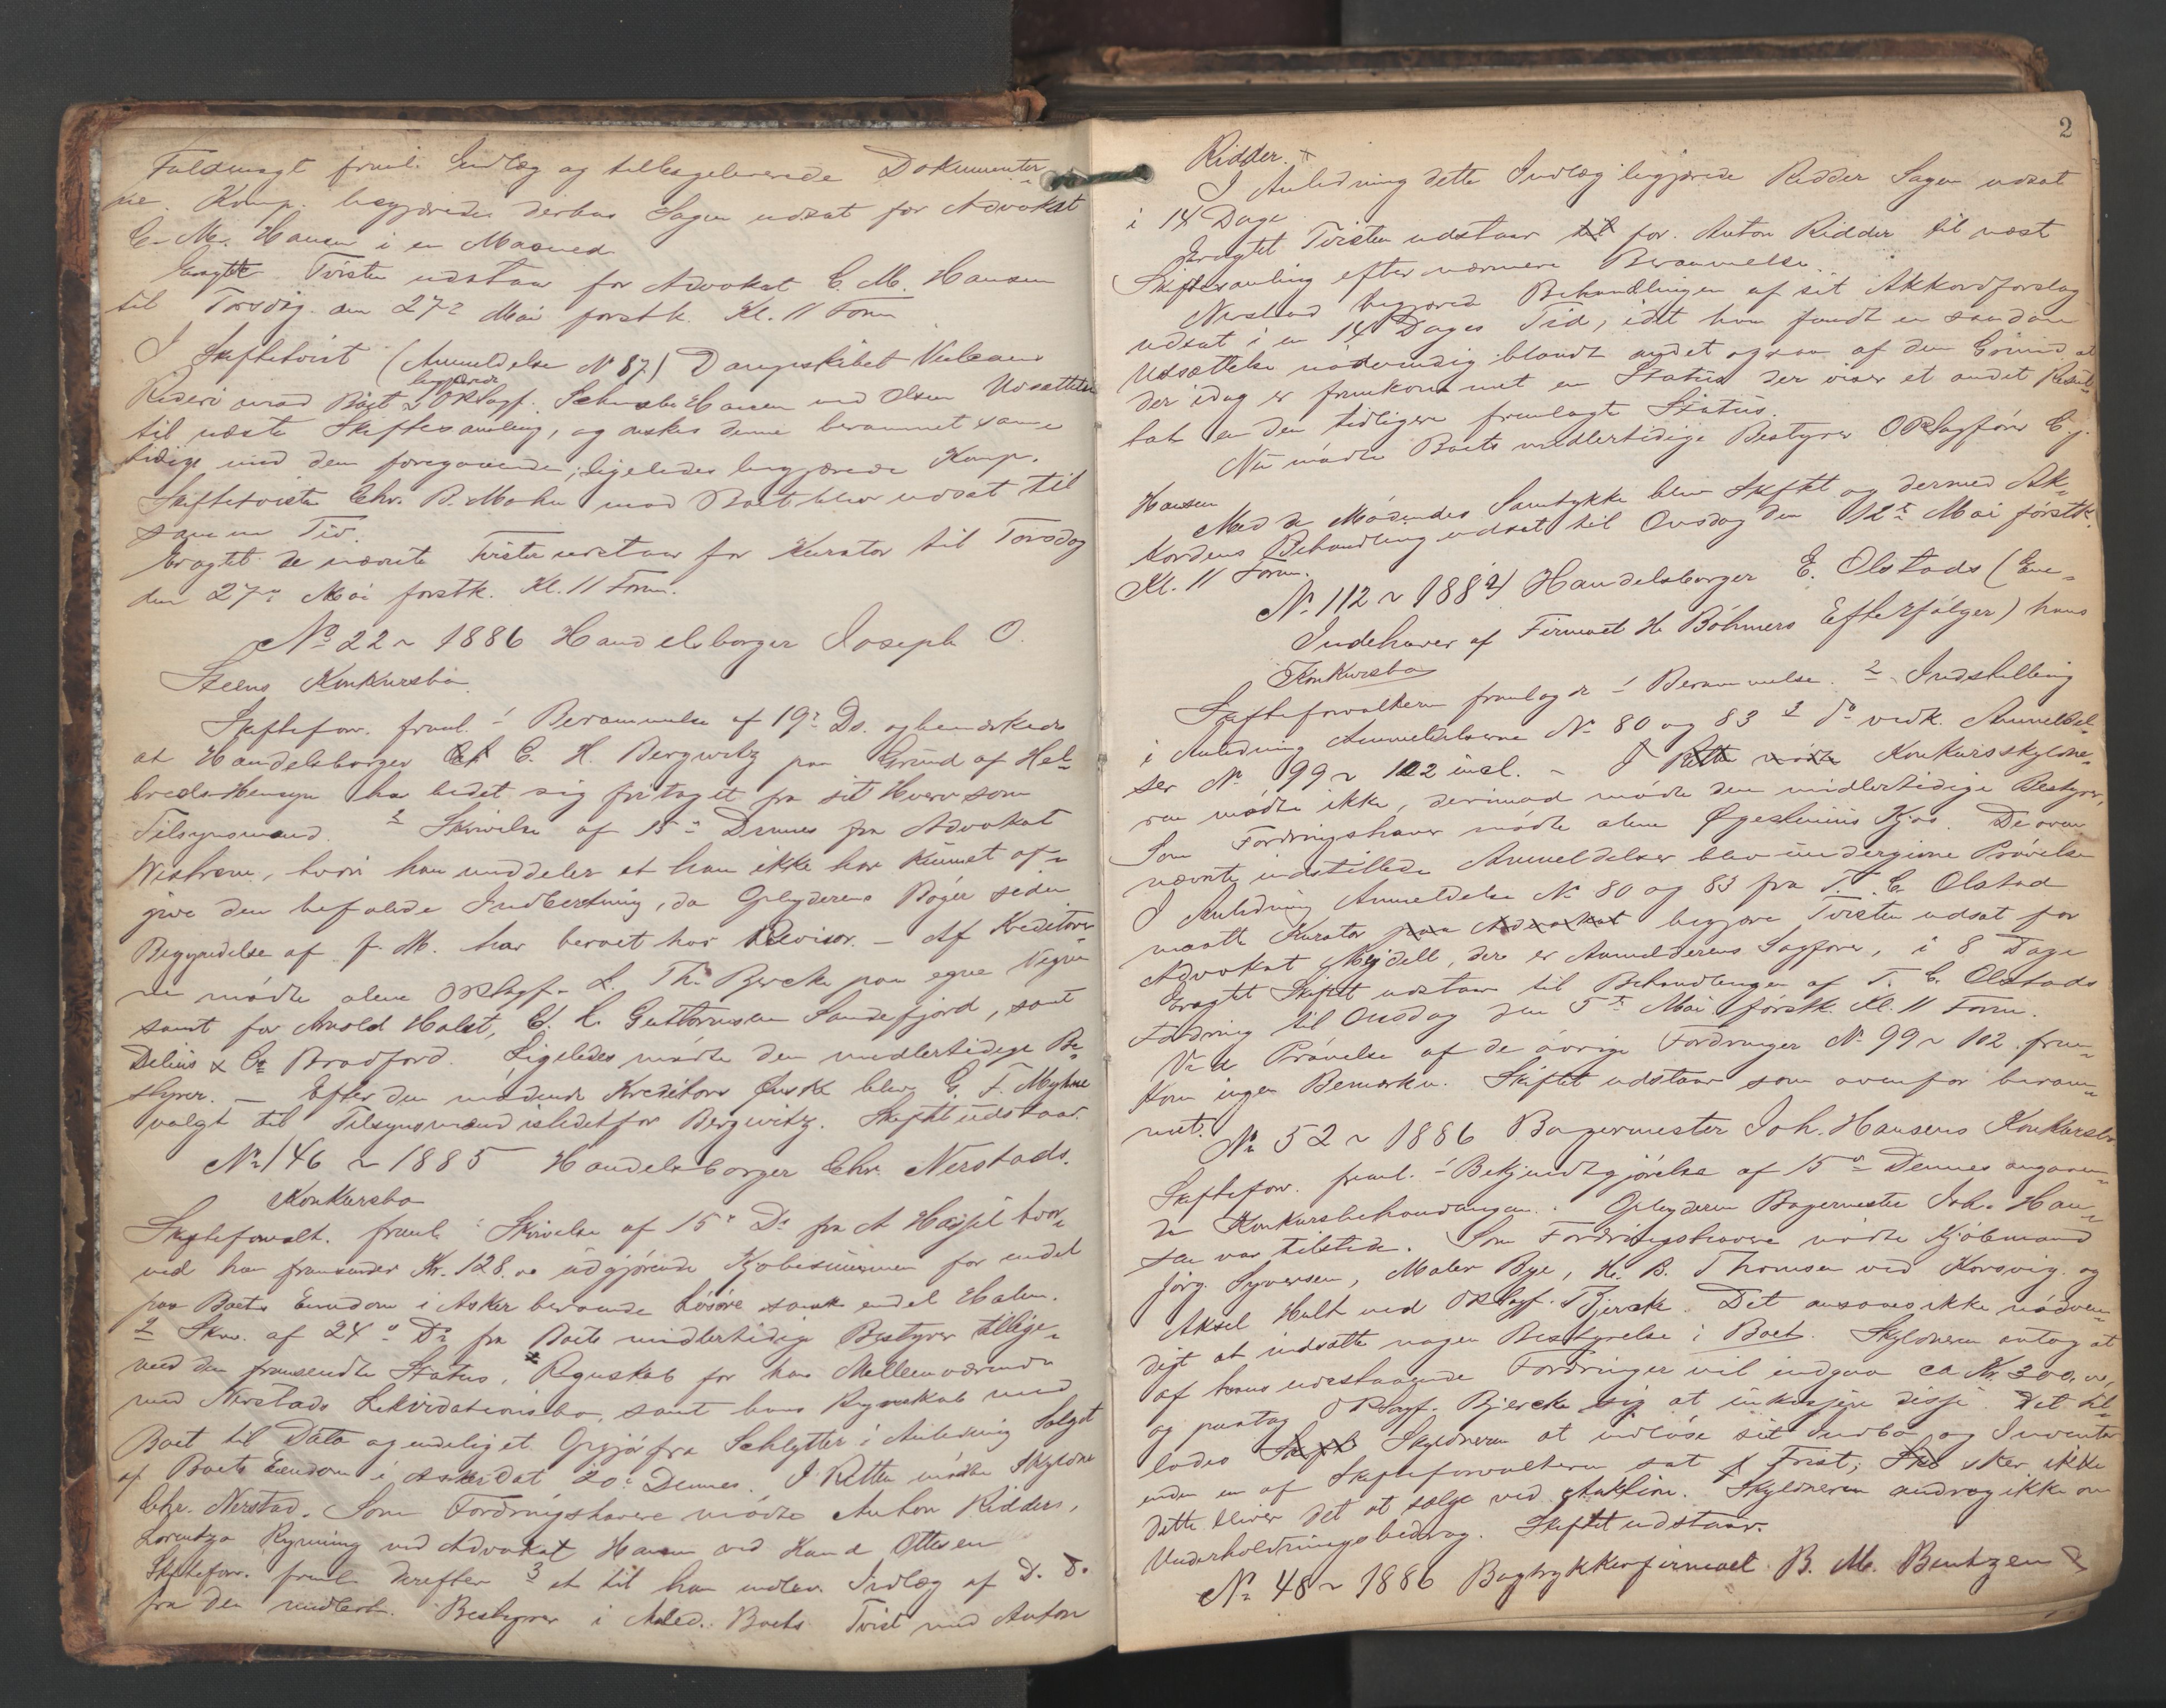 Fuldmagt freml. Indlæg og tilbageleverede Dokumenter-
ne. Komp. begjærede derhos Sagen udsat for Advokat
C. M. Hansen i en Maaned.
Eragtet Tvisten udstaar for Advokat C. M. Hansen
til Torsdag den 27de Mai førstk. Kl. 11 Form.
I Skiftetvist (Anmeldelse No 87) Dampskibet Vulcans
Rederi mod Boet begjærede ORSagf. Hansen ved Olsen Udsættelse
til næste Skiftesamling, og ønskes denne berammet sam-
tidige med den foregaaende; ligeledes begjærede Komp.
Skiftetvisten Chr. B. Mohn mod Boet blev udsat til
samme Tid.
Eragtet de nævnte Tvister udstaar for Kurator til Torsdag
den 27de Mai førstk. Kl. 11 Form.
No 22 ~ 1886 Handelsborger Joseph O.
Steens Konkursbo.
Skifteforv. freml. 1 Berammelse af 19de Ds. og bemærkede
at Handelsborger C. H. Bergwitz paa Grund af Hel-
breds Hensyn har bedet sig fritaget fra sit Hverv som
Tilsynsmand. 2 Skrivelse af 15de Dennes fra Advokat
Wistrøm, hvori han meddeler at han ikke har kunnet af-
give den befalede Indberetning, da Opbyderens Bøger siden
Begyndelse af f. M. har beroet hos Revisor. - Af Kreditorer-
ne mødte alene ORSagf. L. Th. Bjercke paa egne Vegne
samt for Arnold Holst, C. L. Guttormsen Sandefjord, samt
Delius & Co Bradford. Ligeledes mødte den midlertidige Be-
styrer. - Efter den mødende Kreditors Ønske blev G. F. Myhre
valgt til Tilsynsmand istedetfor Bergwitz. Skiftet udstaar.
No 146 ~ 1885 Handelsborger Chr. Nerstads.
Konkursbo
Skifteforvalt. freml. 1 Skrivelse af 15de Ds fra A hvor-
ved han fremsender Kr. 128.00 udgjørende Kjøbesummen for endel
paa Boets Eiendom i Asker beroende Løsøre samt endel Halm.
2 Skr. af 24de Ds fra Boets midlertidige Bestyrer tillige-
med den fremsendte Status, Regnskab for hans Mellemværende
med Nerstads Likvidationsbo, samt hans Regnskab med
Boet til Dato og endelig et Opgjør fra Schlytter i Anledning Salget
af Boets Eiendom i Asker dat 20de Dennes. I Retten mødte Skyldner
Chr. Nerstad. Som Fordringshavere mødte Anton Ridder,
Lorentza Ryning ved Advokat Hansen ved Kand Ottesen
Skifteforv. freml. derefter 3 et til ham indlev. Indlæg af D. D.
fra den midlert. Bestyrer i Anled. Boets Tvist med Anton
2
Ridder.
I Anledning dette Indlæg begjærede Ridder Sagen udsat
i 14 Dage
Eragtet Tvisten udstaar til for Anton Ridder til næst
Skiftesamling efter nærmere Berammelse.
Nerstad begjæred Behandlingen af sit Akkordforslag
udsat i en 14 Dages Tid, idet han fandt en saadan
Udsættelse nødvendig blandt andet ogsaa af den Grund at
der idag er fremkommet en Status der viser et andet Resul-
tat en den tidligere fremlagte Status.
Nu mødte Boets midlertidige Bestyrer ORSagfører Ej.
Hansen
Med de Mødendes Samtykke blev Skiftet og dermed Ak-
kordens Behandling udsat til Onsdag den 12te Mai førstk.
Kl. 11 Form.
No 112 ~ 1884 Handelsborger E. Olstads (Ene-
Indehaver af Firmaet H. Bøhmers Efterfølger) hans
Konkursbo
Skifteforvalteren fremlagde 1 Berammelse. 2 Indstilling
i Anledning Anmeldelserne No 80 og 83 3 do vedk. Anmeldel-
ser No 99 ~ 102 incl. - I Retten mødte Konkursskyldne-
ren mødte ikke, derimod mødte den midlertidige Bestyrer,
Som Fordringshaver mødte alene Kjos. De oven
nævnte indstillede Anmeldelser blev undergivne Prøvelse
I Anledning Anmeldelse No 80 og 83 fra T. C. Olstad
maatte Kurator paa Advokat begjære Tvisten udsat for
Advokat Mejdell, der er Anmelderens Sagfører, i 8 Dage
Eragtet Skiftet udstaar til Behandlingen af T. C. Olstads
Fordring til Onsdag den 5te Mai førstk. Kl. 11 Form.
Ved Prøvelse af de øvrige Fordringer No 99 ~ 102 frem-
kom ingen Bemærkn. Skiftet udstaar som ovenfor beram-
met.
No 52 ~ 1886 Bagermester Joh. Hansens Konkursbo
Skifteforv. freml. 1 Bekjendtgjørelse af 15de Dennes angaaen-
de Konkursbehandlingen. Opbyderen Bagermester Joh. Han-
sen var tilstede. Som Fordringshavere mødte Kjøbmand
Jørg. Syversen, Maler Bye, H. B. Thomsen ved Korsvig og
Aksel Holt ved ORSagf. Bjercke. Det ansaaes ikke nødven-
digt at indsætte nogen Bestyrelse i Boet. Skyldneren antog at
af hans udestaaende Fordringer vil indgaa ca Kr. 300.00,
og paatog ORSagf. Bjercke sig at inkassere disse. Det til-
lades Skyldneren at indløse sit Indbo og Inventar
inden en af Skifteforvalteren sat Frist; sker ikke
dette bliver det at sælge ved Auktion. Skyldneren androg ikke om
Underholdningsbidrag. Skiftet udstaar.
No 48 ~ 1886 Bogtrykkerfirmaet B. M. Bentzen &